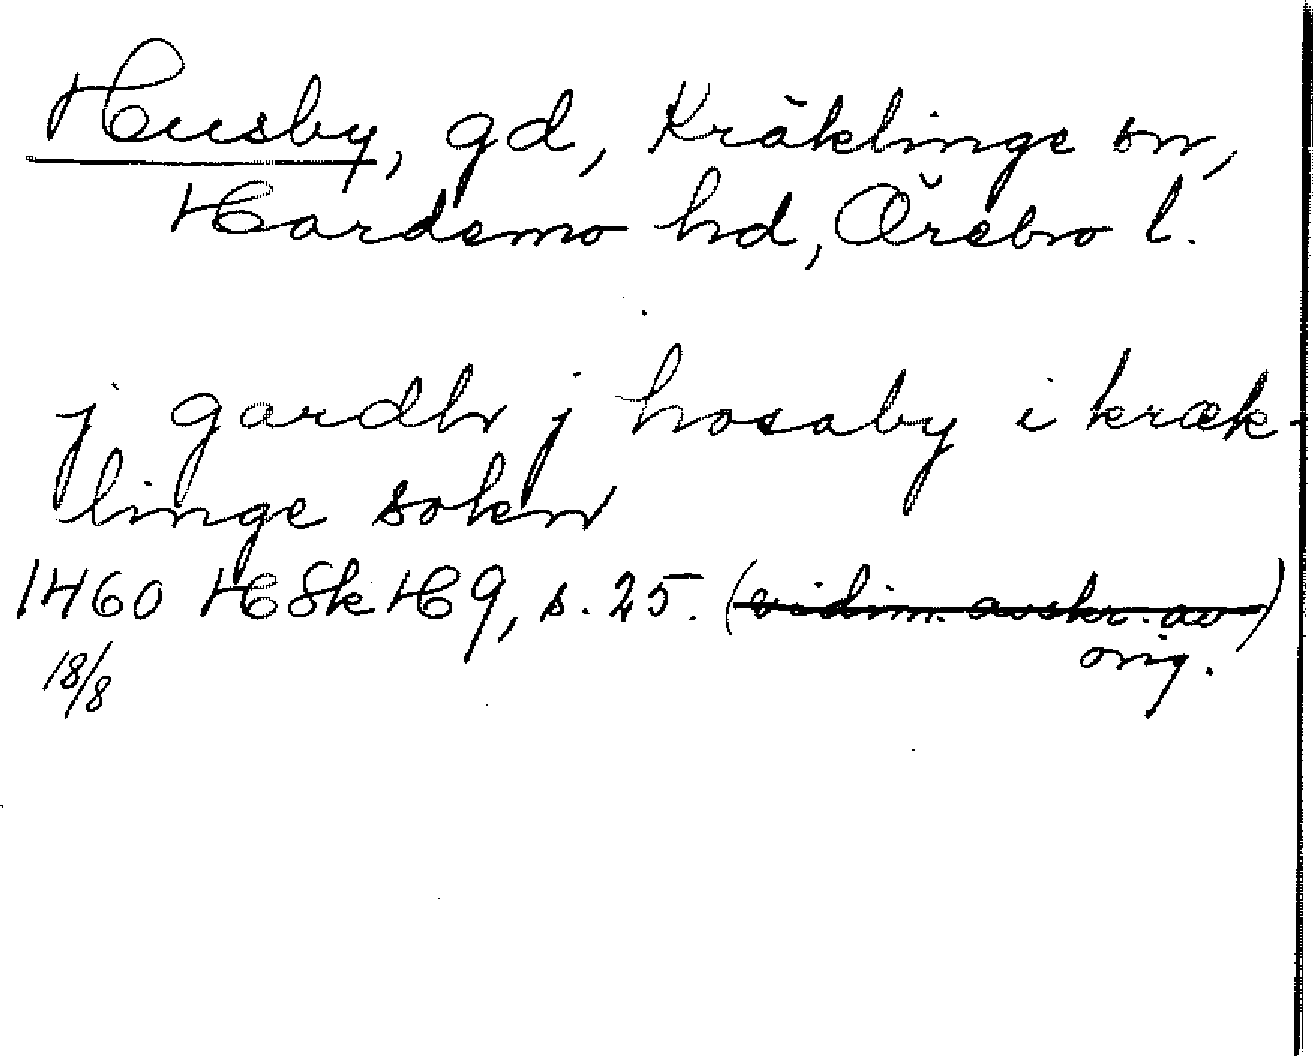 Husby, gd, Kräklinge sn,
Hardemo hd, Örebro l.
j gardh j hosaby i kræk-
linge sokn
1460 HSkH 9, s. 25. (vidim. avskr. av)
orig.
18/8